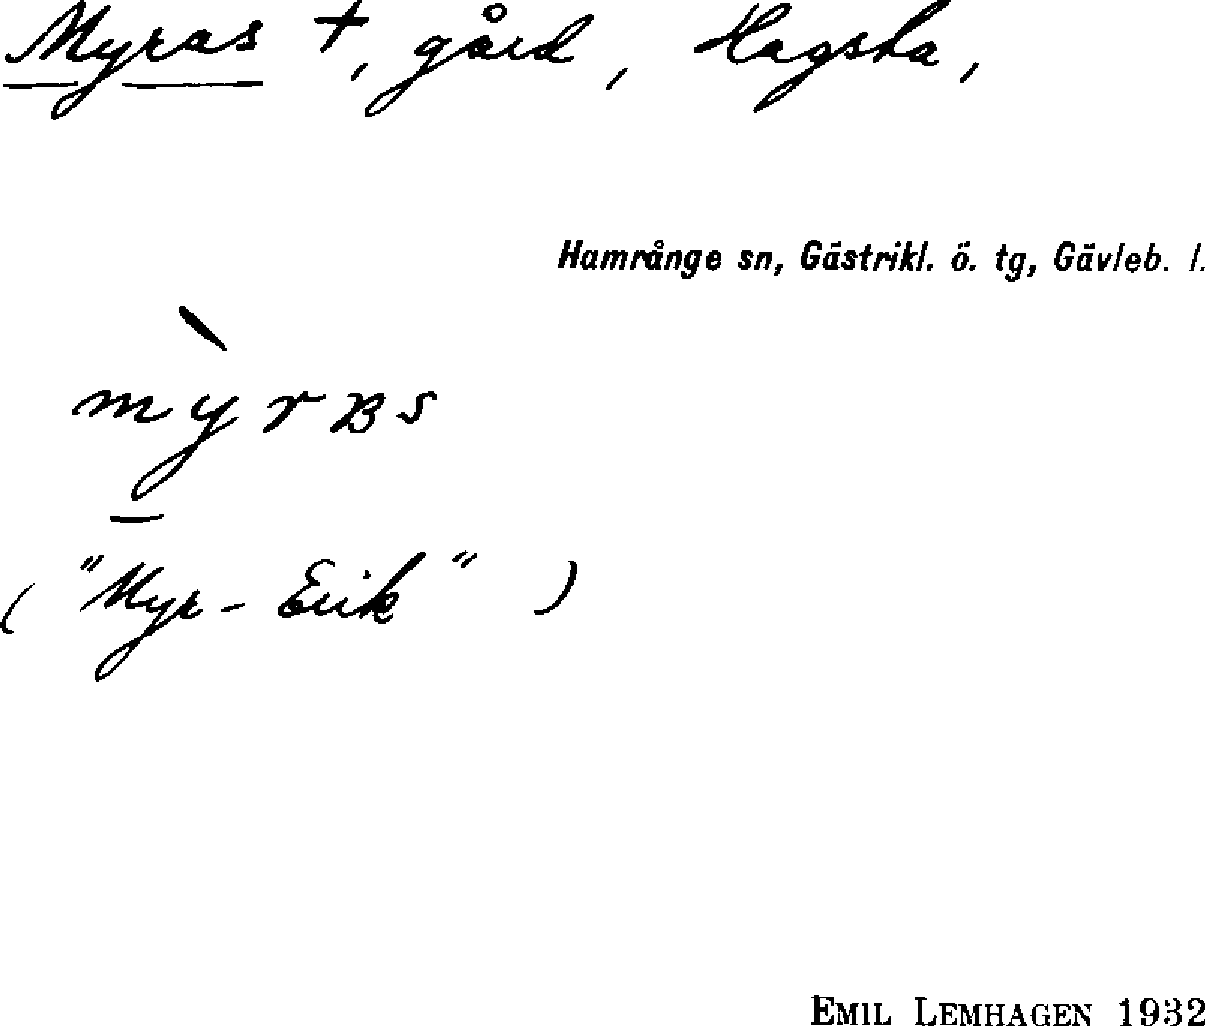 Myras +, gård, Hagsta,
Hamrånge sn, Gästrikl. ö. tg, Gävleb. l.
m ỳ r ʙ s
("Myr-Erik")
EMIL LEMHAGEN 1932